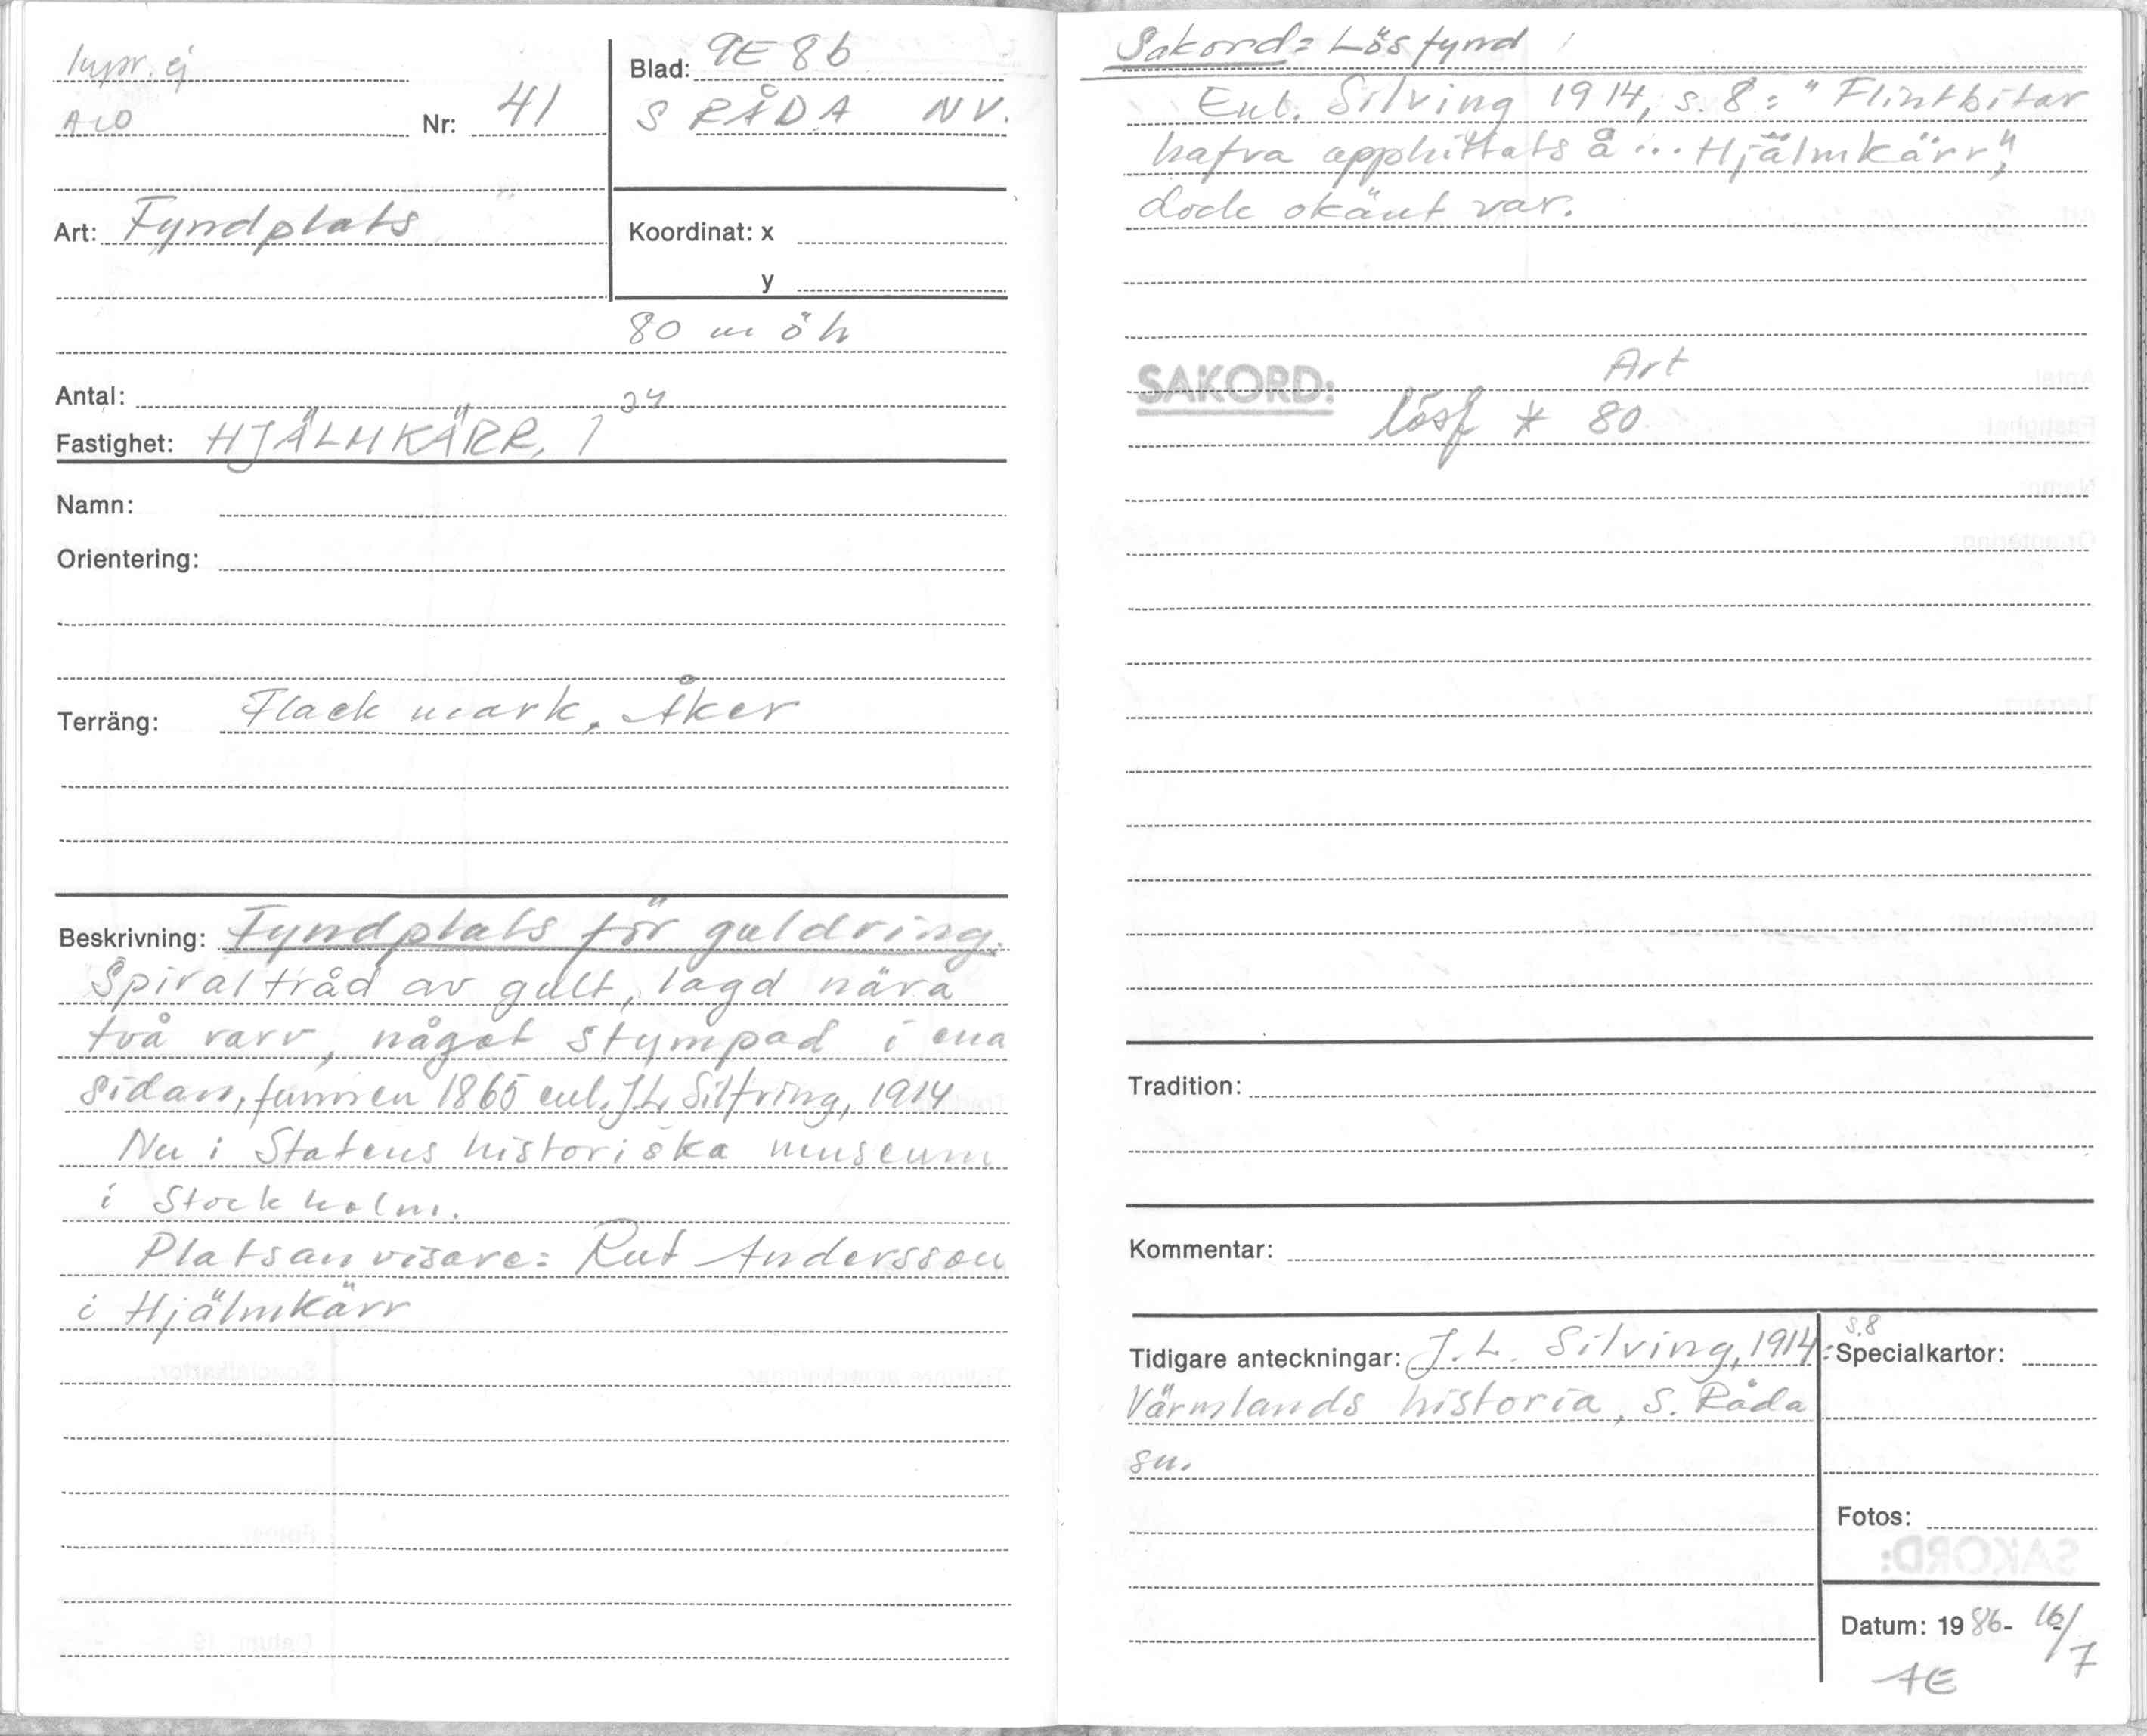 Inpr. ej
ALO
Nr: 41
Blad: 9E 8b
S RÅDA NV.
Art: Fyndplats
Koordinat: x
y
80 m ö h
Antal:
Fastighet: HJÄLMKÄRR, 1 34
Namn:
Orientering:
Terräng: Flack mark. Åker
Beskrivning: Fyndplats för guldring.
Spiraltråd av gult, lagd nära
två varv, något stympad i ena
sidan, funnen 1865 enl. J L Silfving, 1914
Nu i Statens historiska museum
i Stockholm.
Platsanvisare: Rut Andersson
i Hjälmkärr
Sakord: Lösfynd
Enl. Silving 1914, s. 8: "Flintbitar
hafva upphittats å ... Hjälmkärr",
dock okänt var.
SAKORD:
Art
lösf * 80
Tradition:
Kommentar:
Tidigare anteckningar: J. L. Silving, 1914: s.8
Värmlands historia, S. Råda
sn.
Specialkartor:
Fotos:
Datum: 1986- 16/7
AE